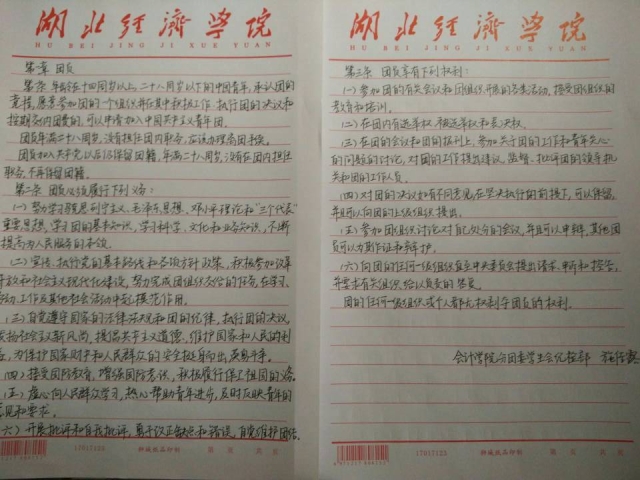 湖北经济学院
HU BEI JING JI XUE YUAN
第一章 团员
第一条 年龄在十四周岁以上,二十八周岁以下的中国青年,承认团的
章程,愿意参加团的一个组织并在其中积极工作、执行团的决议和
按期交纳团费的,可以申请加入中国共产主义青年团。
团员年满二十八周岁,没有担任团内职务,应该办理离团手续。
团员加入共产党以后仍保留团籍,年满二十八周岁,没有在团内担任
职务,不再保留团籍。
第二条 团员必须履行下列义务:
(一)努力学习马克思列宁主义、毛泽东思想、邓小平理论和"三个代表"
重要思想,学习团的基本知识,学习科学、文化和业务知识,不断
提高为人民服务的本领。
(二)宣传、执行党的基本路线和各项方针政策,积极参加改革
开放和社会主义现代化建设,努力完成团组织交给的任务,在学习、
劳动、工作及其他社会活动中起模范作用。
(三)自觉遵守国家的法律法规和团的纪律,执行团的决议,
发扬社会主义新风尚,提倡共产主义道德,维护国家和人民的利
益,为保护国家财产和人民群众的安全挺身而出,英勇斗争。
(四)接受国防教育,增强国防意识,积极履行保卫祖国的义务。
(五)虚心向人民群众学习,热心帮助青年进步,及时反映青年的
意见和要求。
(六)开展批评和自我批评,勇于改正缺点和错误,自觉维护团结。
17017123
湖北经济学院
HU BEI JING JI XUE YUAN
第三条 团员享有下列权利:
(一)参加团的有关会议和团组织开展的各类活动,接受团组织的
教育和培训。
(二)在团内有选举权、被选举权和表决权。
(三)在团的会议和团的报刊上,参加关于团的工作和青年关心
的问题的讨论,对团的工作提出建议,监督、批评团的领导机
关和团的工作人员。
(四)对团的决议如有不同意见,在坚决执行的前提下,可以保留,
并且可以向团的上级组织提出。
(五)参加团组织讨论对自己处分的会议,并且可以申辩,其他团
员可以为其作证和辩护。
(六)向团的任何一级组织直至中央委员会提出请求、申诉和控告,
并要求有关组织给以负责的答复。
团的任何一级组织或个人都无权剥夺团员的权利。
会计学院分团委学生会纪检部
17017123